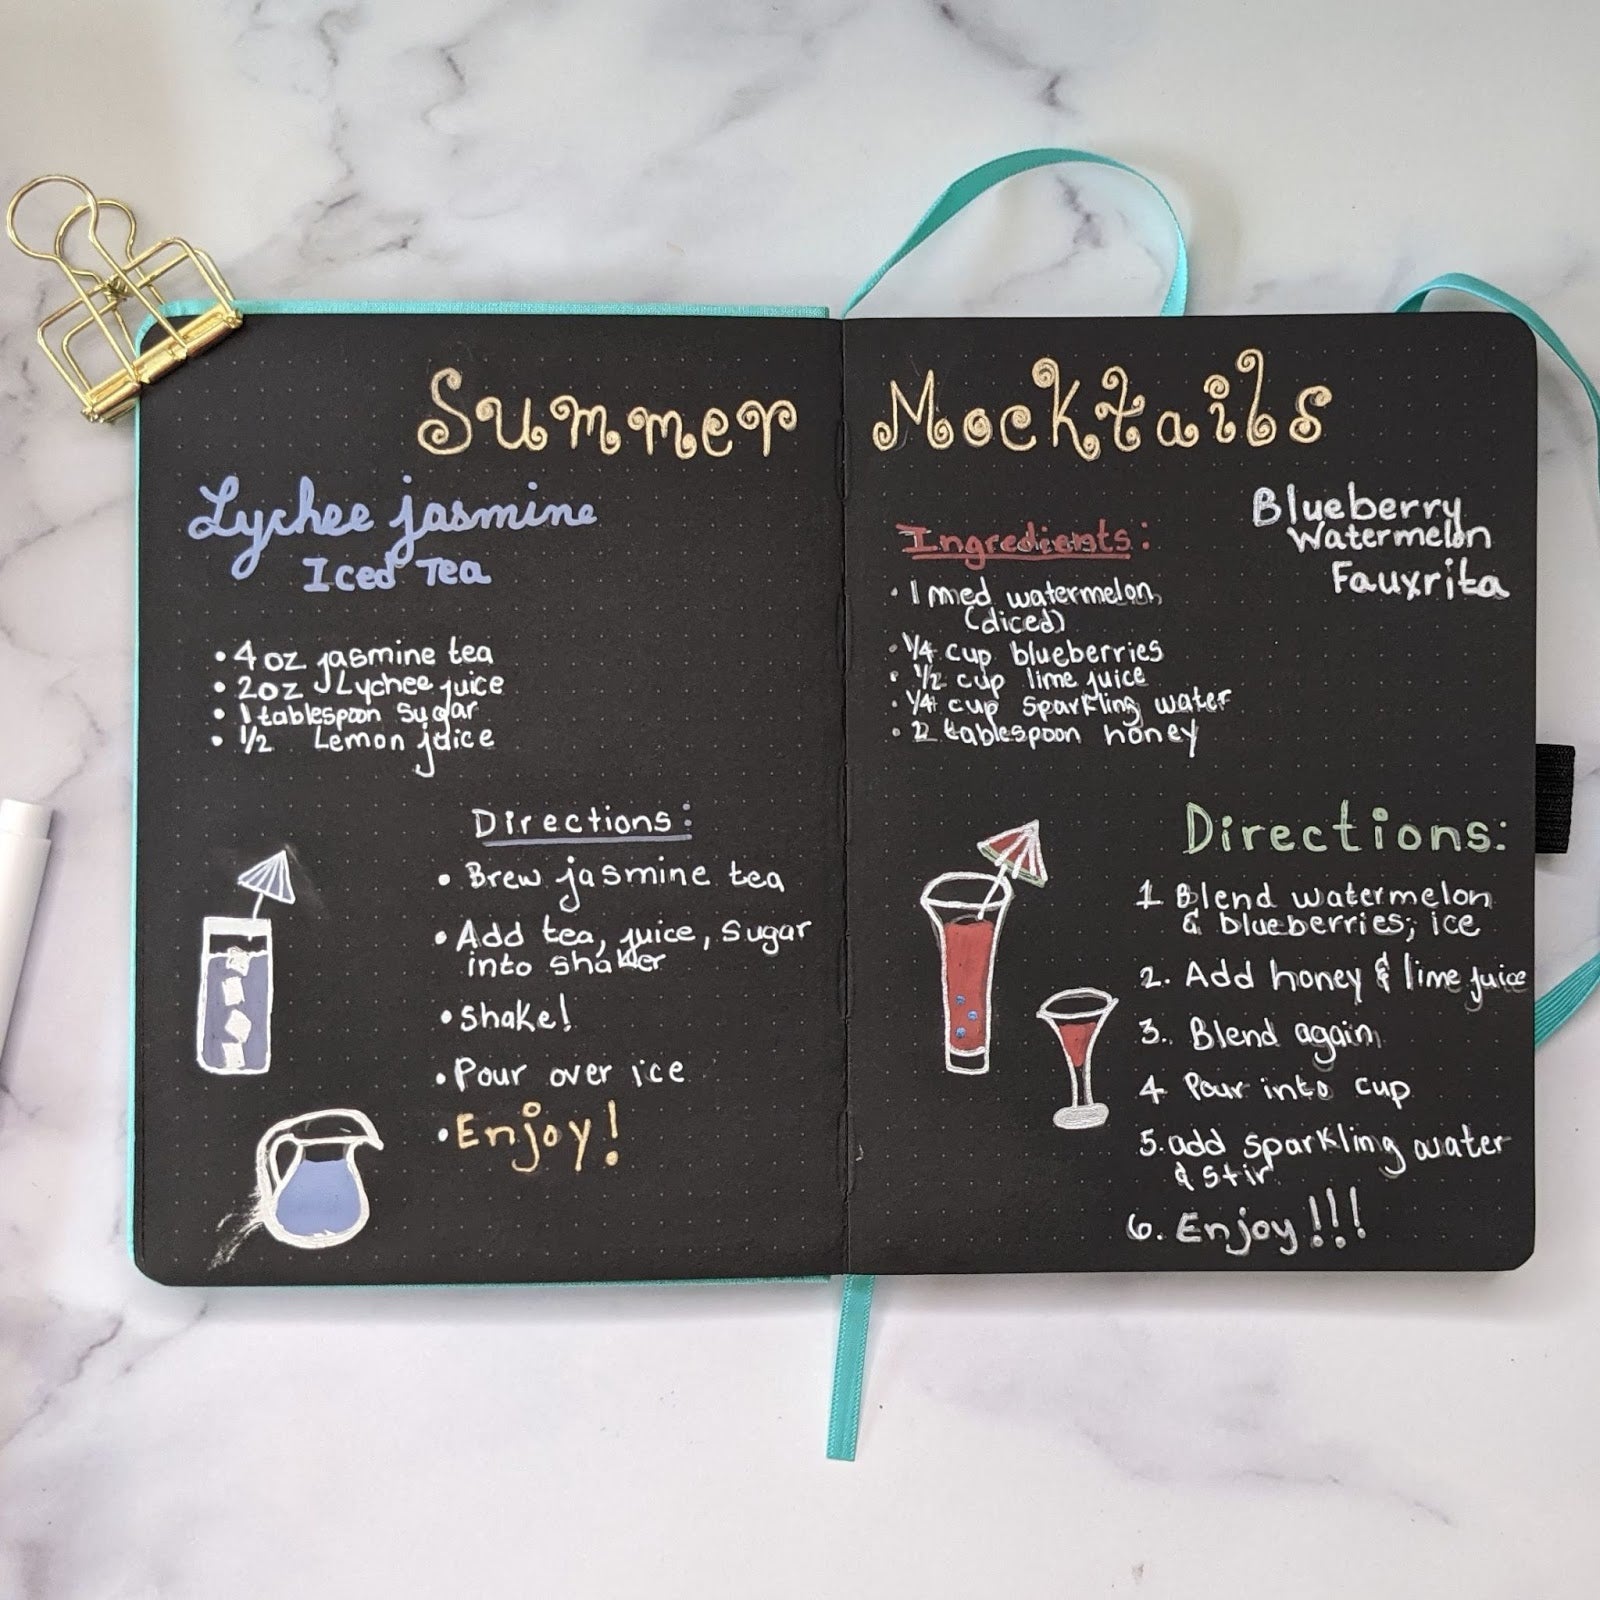 Summer Mocktails
Lychee jasmine
Iced Tea
• 4 oz jasmine tea
• 2oz Lychee juice
• 1 tablespoon sugar
• 1/2 Lemon juice
Directions:
• Brew jasmine tea
• Add tea, juice, sugar
into shaker
• shake!
• Pour over ice
• Enjoy!
Blueberry
Watermelon
Fauxrita
Ingredients:
• 1 med watermelon
(diced)
• 1/4 cup blueberries
• 1/2 cup lime juice
• 1/4 cup sparkling water
• 2 tablespoon honey
Directions:
1 Blend watermelon
& blueberries; ice
2. Add honey & lime juice
3. Blend again
4 Pour into cup
5. add sparkling water
& stir
6. Enjoy!!!